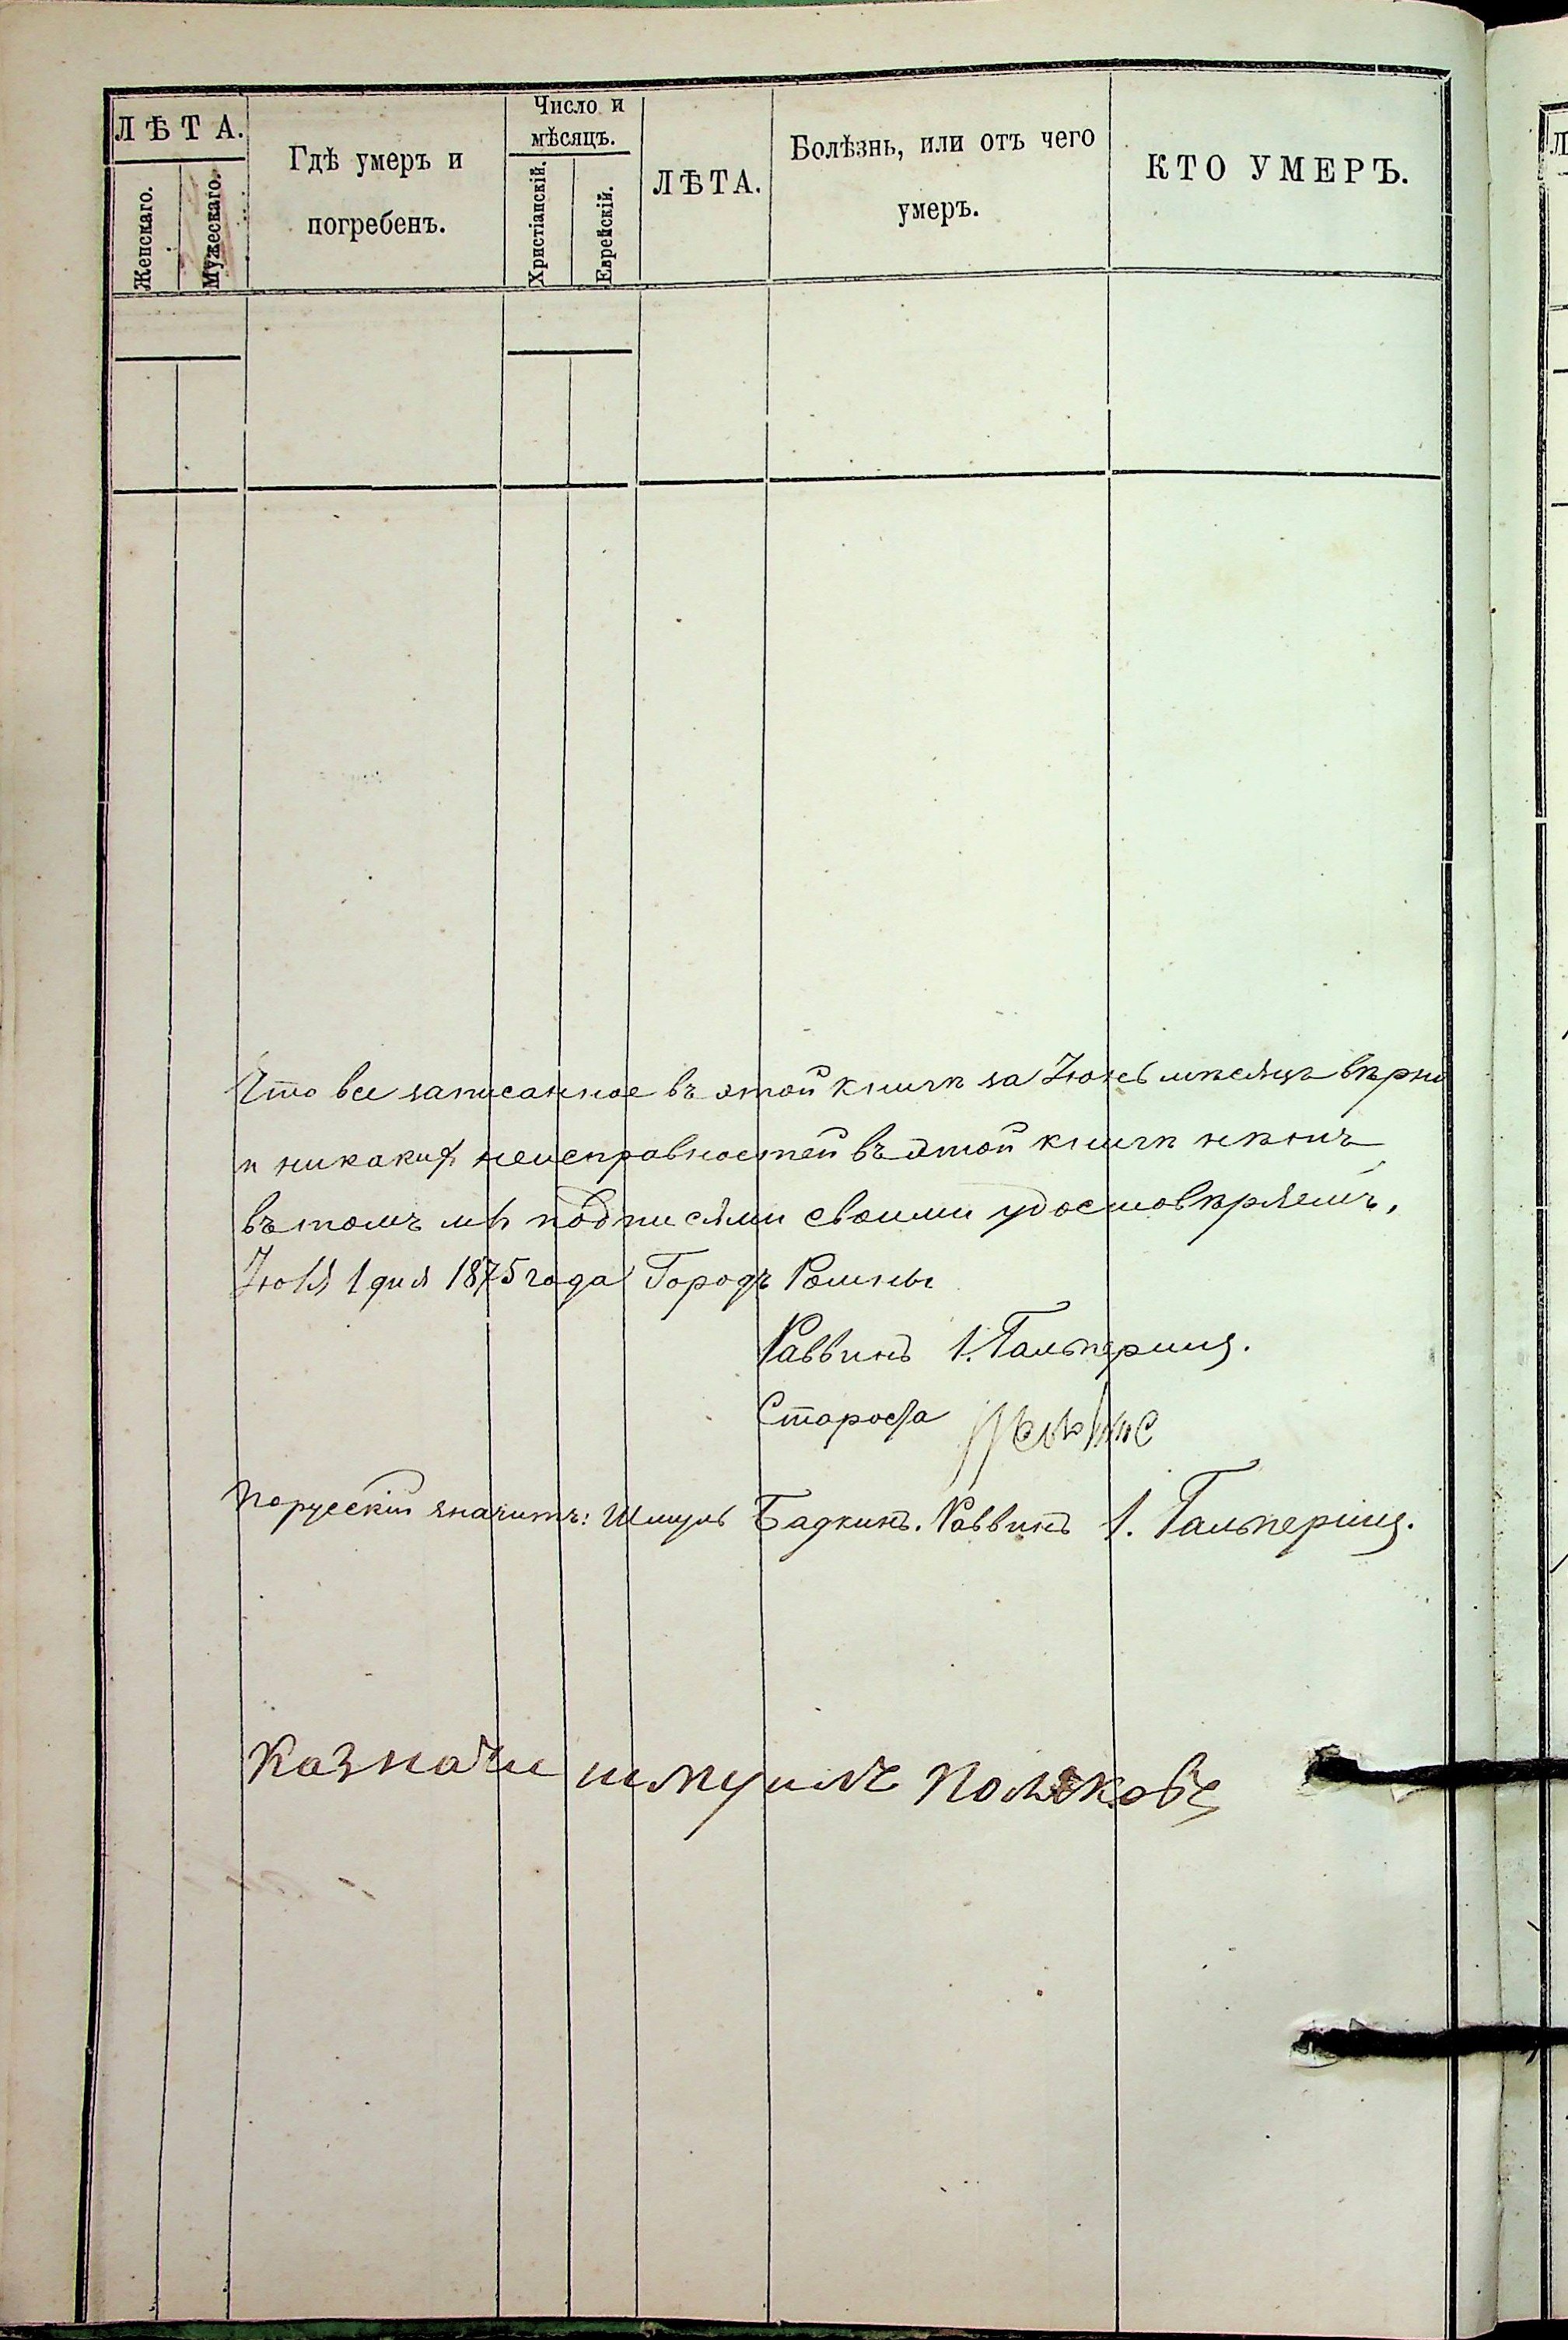 ЛѢТА.
Женскаго.
Мужескаго.
Гдѣ умеръ и
погребенъ.
Число и
мѣсяцъ.
Христіанскій.
Еврейскій.
ЛѢТА.
Болѣзнь, или отъ чего
умеръ.
КТО УМЕРЪ.
Что все записанное въ этой книгѣ за Іюнь мѣсяцъ вѣрно
и никаких неисправностей въ этой книгѣ нѣтъ
въ томъ мы подписями своими удостовѣряемъ,
Іюля 1 дня 1875 года Городъ Ромны
Раввинъ І. Гальперинъ.
Староста
по русскій значитъ: Шмуль Бадкинъ. Раввинъ І. Гальперинъ.
Казначи шмуилъ Поляковъ